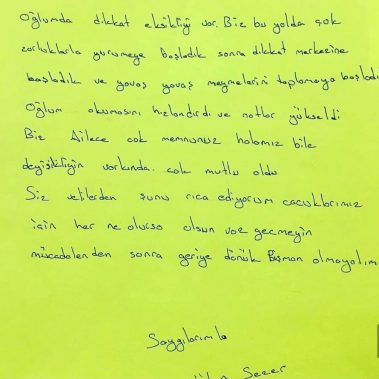 Oğlumda dikkat eksikliği var. Biz bu yolda çok
zorluklarla yürümeye başladık sonra dikkat merkezine
başladık ve yavaş yavaş meyvelerini toplamaya başladı
Oğlum okumasını hızlandırdı ve notlar yükseldi
Biz Ailece cok memnunuz halamız bile
değişikliğin varkında. cok mutlu oldu
Siz velilerden şunu rica ediyorum cocuklarımız
için her ne olursa olsun vaz gecmeyin
mücadelenden sonra geriye dönük Pişman olmayalım
Saygılarımla
Sezer